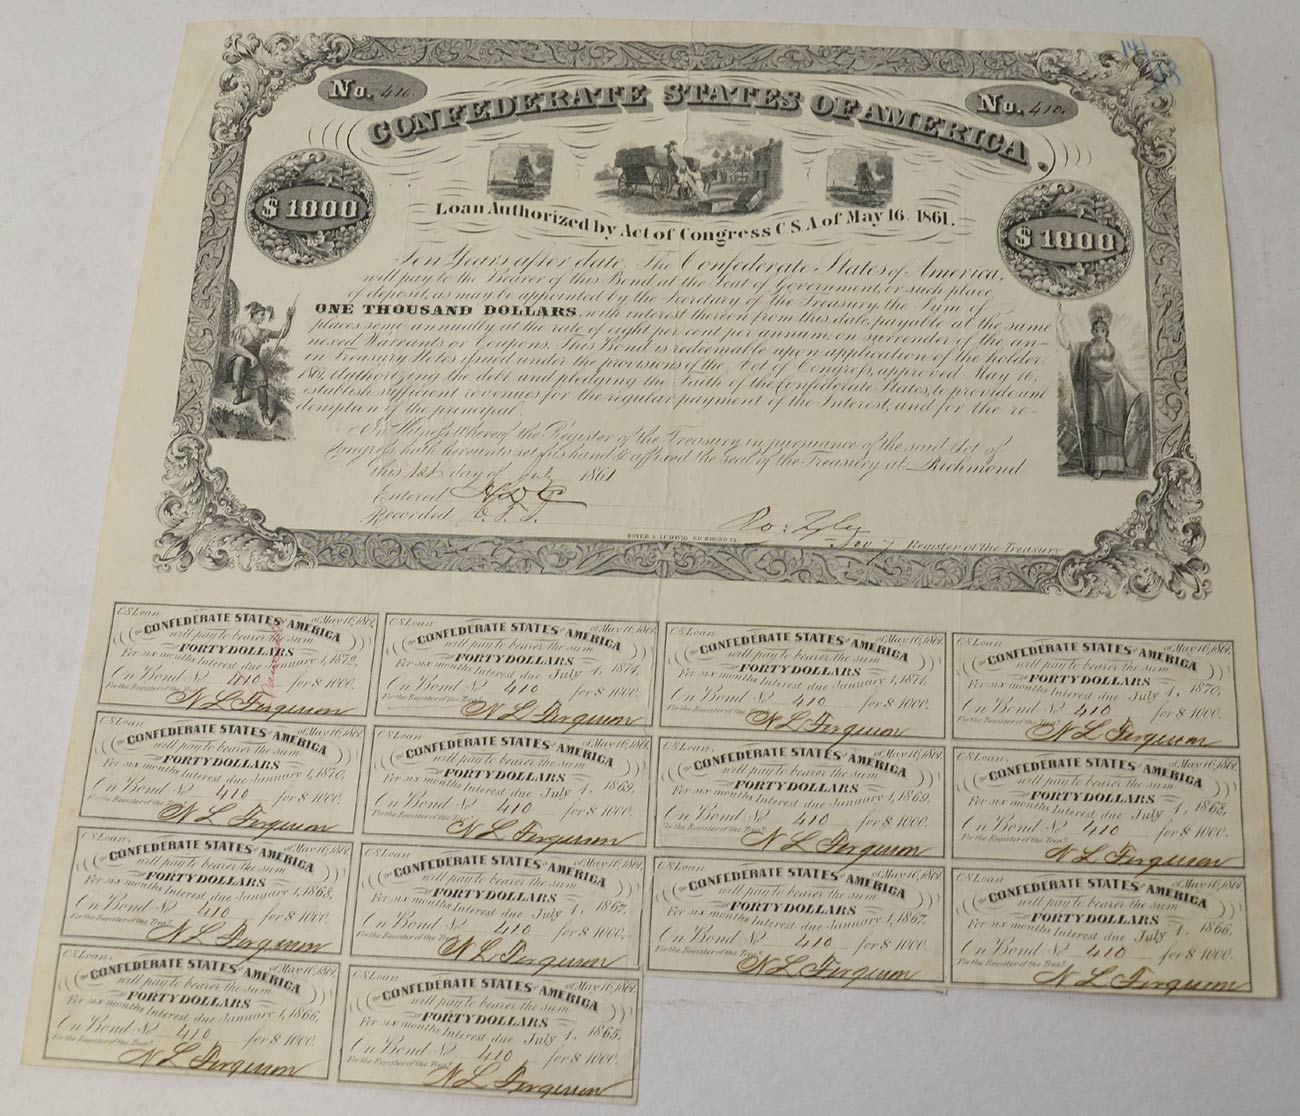 No. 410.
No. 410.
CONFEDERATE STATES OF AMERICA.
$ 1000
$ 1000
Loan Authorized by Act of Congress C.S.A of May 16. 1861.
Ten Years after date, The Confederate States of America,
will pay to the Bearer of this Bond at the Seat of Government, or such place
of deposit, as may be appointed by the Secretary of the Treasury, the Sum of
ONE THOUSAND DOLLARS, with interest thereon from this date, payable at the same
place, semi annually, at the rate of eight per cent per annum, on surrender of the an-
nexed Warrants or Coupons. This Bond is redeemable upon application of the holder,
in Treasury Notes issued under the provisions of the Act of Congress, approved May 16,
1861, authorizing the debt and pledging the Faith of the Confederate States, to provide and
establish sufficient revenues for the regular payment of the Interest, and for the re-
demption of the principal.
In Witness Whereof the Register of the Treasury in pursuance of the said Act of
Congress hath hereunto set his hand & affixed the seal of the Treasury at Richmond
this 1st day of July 1861
Entered
Recorded
Ro: Tyler
Register of the Treasury
HOYER & LUDWIG RICHMOND VA.
C.S. Loan of May 16, 1861.
The CONFEDERATE STATES OF AMERICA
will pay to bearer the sum
of FORTY DOLLARS
For six months Interest due January 1, 1872,
On Bond No 410 for $ 1000.
For the Register of the Treasy.
N L Ferguson
C.S. Loan of May 16, 1861.
The CONFEDERATE STATES OF AMERICA
will pay to bearer the sum
of FORTY DOLLARS
For six months Interest due July 1, 1871,
On Bond No 410 for $ 1000.
For the Register of the Treasy.
N L Ferguson
C.S. Loan of May 16, 1861.
The CONFEDERATE STATES OF AMERICA
will pay to bearer the sum
of FORTY DOLLARS
For six months Interest due January 1, 1871,
On Bond No 410 for $ 1000.
For the Register of the Treasy.
N L Ferguson
C.S. Loan of May 16, 1861.
The CONFEDERATE STATES OF AMERICA
will pay to bearer the sum
of FORTY DOLLARS
For six months Interest due July 1, 1870,
On Bond No 410 for $ 1000.
For the Register of the Treasy.
N L Ferguson
C.S. Loan of May 16, 1861.
The CONFEDERATE STATES OF AMERICA
will pay to bearer the sum
of FORTY DOLLARS
For six months Interest due January 1, 1870,
On Bond No 410 for $ 1000.
For the Register of the Treasy.
N L Ferguson
C.S. Loan of May 16, 1861.
The CONFEDERATE STATES OF AMERICA
will pay to bearer the sum
of FORTY DOLLARS
For six months Interest due July 1, 1869,
On Bond No 410 for $ 1000.
For the Register of the Treasy.
N L Ferguson
C.S. Loan of May 16, 1861.
The CONFEDERATE STATES OF AMERICA
will pay to bearer the sum
of FORTY DOLLARS
For six months Interest due January 1, 1869,
On Bond No 410 for $ 1000.
For the Register of the Treasy.
N L Ferguson
C.S. Loan of May 16, 1861.
The CONFEDERATE STATES OF AMERICA
will pay to bearer the sum
of FORTY DOLLARS
For six months Interest due July 1, 1868,
On Bond No 410 for $ 1000.
For the Register of the Treasy.
N L Ferguson
C.S. Loan of May 16, 1861.
The CONFEDERATE STATES OF AMERICA
will pay to bearer the sum
of FORTY DOLLARS
For six months Interest due January 1, 1868,
On Bond No 410 for $ 1000.
For the Register of the Treasy.
N L Ferguson
C.S. Loan of May 16, 1861.
The CONFEDERATE STATES OF AMERICA
will pay to bearer the sum
of FORTY DOLLARS
For six months Interest due July 1, 1867,
On Bond No 410 for $ 1000.
For the Register of the Treasy.
N L Ferguson
C.S. Loan of May 16, 1861.
The CONFEDERATE STATES OF AMERICA
will pay to bearer the sum
of FORTY DOLLARS
For six months Interest due January 1, 1867,
On Bond No 410 for $ 1000.
For the Register of the Treasy.
N L Ferguson
C.S. Loan of May 16, 1861.
The CONFEDERATE STATES OF AMERICA
will pay to bearer the sum
of FORTY DOLLARS
For six months Interest due July 1, 1866,
On Bond No 410 for $ 1000.
For the Register of the Treasy.
N L Ferguson
C.S. Loan of May 16, 1861.
The CONFEDERATE STATES OF AMERICA
will pay to bearer the sum
of FORTY DOLLARS
For six months Interest due January 1, 1866,
On Bond No 410 for $ 1000.
For the Register of the Treasy.
N L Ferguson
C.S. Loan of May 16, 1861.
The CONFEDERATE STATES OF AMERICA
will pay to bearer the sum
of FORTY DOLLARS
For six months Interest due July 1, 1865,
On Bond No 410 for $ 1000.
For the Register of the Treasy.
N L Ferguson